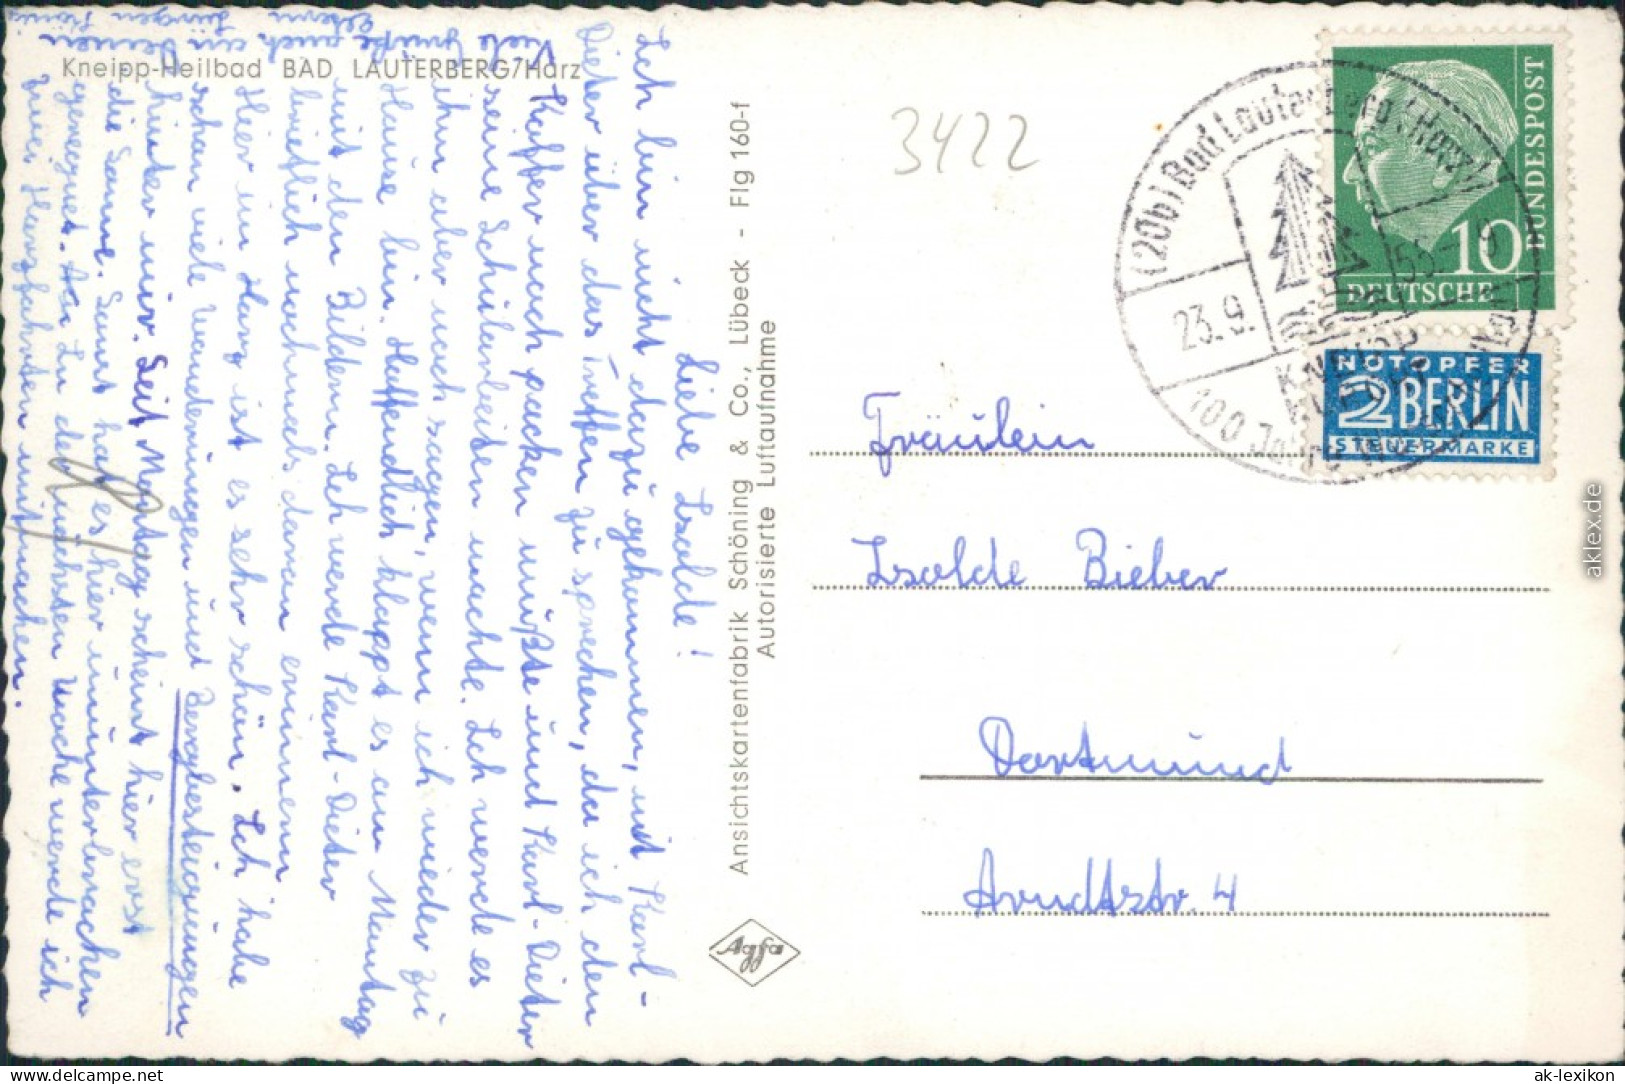 Kneipp-Heilbad BAD LAUTERBERG/Harz
Liebe Isolde!
Ich bin nicht dazu gekommen, mit Karl-
Dieter über das Treffen zu sprechen, da ich den
Koffer noch packen mußte und Karl-Dieter
seine Schularbeiten machte. Ich werde es
ihm aber noch sagen, wenn ich wieder zu
Hause bin. Hoffendlich klappt es am Montag
mit den Bildern. Ich werde Karl-Dieter
brieflich nochmals daran erinnern.
Hier im Harz ist es sehr schön. Ich habe
schon viele Wanderungen und Bergbesteigungen
hinter mir. Seit Montag scheint hier erst
die Sonne. Sonst hat es hier ununterbrochen
geregnet. An In der nächsten Woche werde ich
zwei Harzfahrten mitmachen.
Viele Grüße auch an Deinen
Eltern
Jürgen
Ansichtskartenfabrik Schöning & Co., Lübeck - Flg 160-f
Autorisierte Luftaufnahme
Agfa
3422
(20b) Bad Lauterberg (Harz)
23.9.
55-19
100 Jahre
10
DEUTSCHE
BUNDESPOST
NOTOPFER
2 BERLIN
STEUERMARKE
Fräulein
Isolde Bieber
Dortmund
Arndtstr. 4
aklex.de
Visit our Store at delcampe.net
ak-lexikon